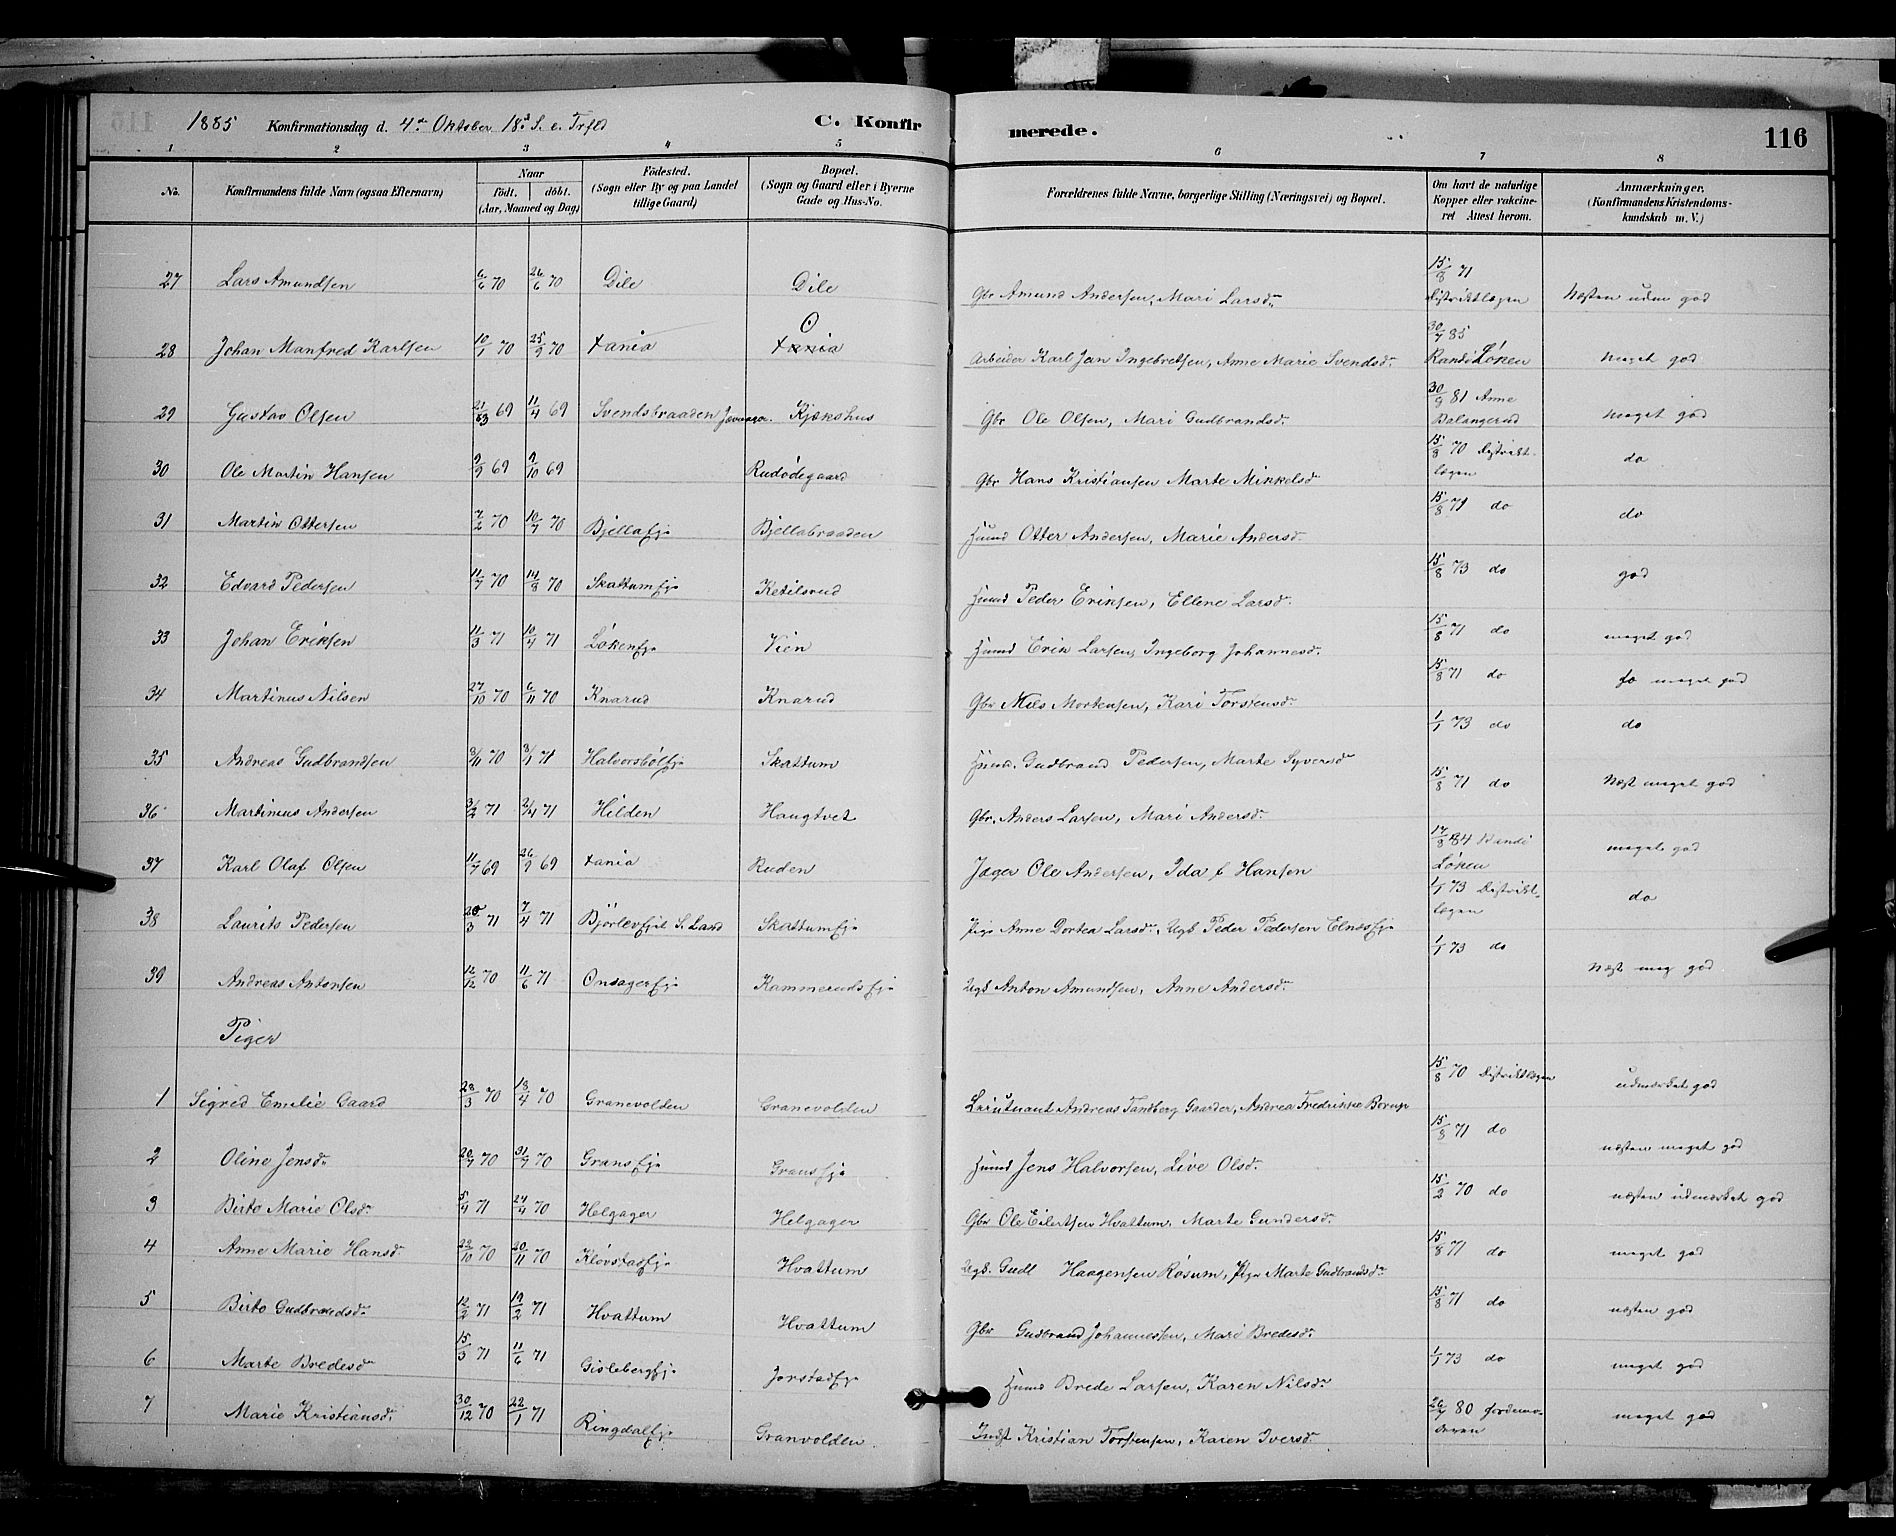 1885 Konfirmationsdag d. 4de Oktober 18d S. e. Trfld C. Konfirmerede. 116
1 2 3 4 5 6 7 8
No. Konfirmandens fulde Navn (ogsaa Efternavn) Naar født. døbt. (Aar, Maaned og Dag) Fødested. (Sogn eller By og paa Landet tillige Gaard) Bopæl. (Sogn og Gaard eller i Byerne Gade og Hus-No. Forældrenes fulde Navne, borgerlige Stilling (Næringsvei) og Bopæl. Om havt de naturlige Kopper eller vaccineret Attest herom. Anmærkninger. (Konfirmandens Kristendomskundskab m. V.)
27 Lars Amundsen 6/6 70 26/6 70 Dile Dile Gbr Amund Andersen, Mari Larsdr 15/8 71 Distriktlægen Næsten udm god
28 Johan Manfred Karlsen 10/1 70 25/9 70 Xania Xania Arbeider Karl Jan Ingebretsen, Anne Marie Svendsdr 30/7 85 Randi Løken meget god
29 Gustav Olsen 21/3 69 11/4 69 Svendsbraaden Jevnager Kjækshus Gbr Ole Olsen, Mari Gudbrandsdr 30/9 81 Anne Dalangerud meget god
30 Ole Martin Hansen 9/9 69 9/10 69 Rudødegaard Gbr Hans Kristiansen Marte Mikkelsdr 15/8 70 Distriktlægen do
31 Martin Ottersen 7/2 70 10/7 70 Bjellafjr Bjellabraaden Husmd Otter Andersen, Marie Andersdr 15/8 71 do do
32 Edvard Pedersen 11/7 70 14/8 70 Skattumfjr Ketilsrud Husmd Peder Eriksen, Ellene Larsdr 15/8 73 do god
33 Johan Eriksen 11/3 71 10/4 71 Løkenfjr Vien Husmd Erik Larsen, Ingeborg Johannesdr 15/8 71 do meget god
34 Martinus Nilsen 27/10 70 6/11 70 Knarud Knarud Gbr Nils Mortensen, Kari Torstensdr 15/8 71 do meget god
35 Andreas Gudbrandsen 3/11 70 3/1 71 Halvorsbølfjr Skattum Husmd. Gudbrand Pedersen, Marte Syversdr 1/1 73 do do
36 Martinius Andersen 3/2 71 2/4 71 Hilden Haugtvet Gbr. Anders Larsen, Mari Andersdr 15/8 71 do Næst meget god
37 Karl Olaf Olsen 11/7 69 26/9 69 Xania Ruden Jæger Ole Andersen, Ida f Hansen 17/8 84 Randi Løken meget god
38 Laurits Pedersen 20/3 71 7/4 71 Bjørlevfjel S. Land Skattumfjr Pige Anne Dortea Larsdr, Ugk Peder Pedersen Elnesfjr 1/1 73 Distriktlægen do
39 Andreas Antonsen 12/12 70 11/6 71 Onsagerfjr Kammerudsfjr Ugk Anton Amundsen, Anne Andersdr 1/1 73 do Næst meg god
Piger
1 Sigrid Emelie Gaard 28/3 70 18/4 70 Granevolden Granevolden Leiutnant Andreas Tandberg Gaarder, Andrea Fredrikke Borup 15/8 70 Distriktlægen udmærket god
2 Oline Jensdr 20/7 70 31/7 70 Gransfjr Gransfjr Husmd Jens Halvorsen, Live Olsdr 15/8 71 do næsten meget god
3 Birto Marie Olsdr 5/4 71 24/4 70 Helgager Helgager Gbr Ole Eilertsen Hvattum, Marte Gundersdr 15/2 70 do næsten udmærket god
4 Anne Marie Hansdr 22/10 70 20/11 70 Kløvstadfjr Hvattum Ugk. Gudl Haagensen Røsum, Pige Marte Gudbrandsdr 15/8 71 do meget god
5 Birto Gudbrandsdr 12/2 71 19/2 71 Hvattum Hvattum Gbr Gudbrand Johannessen, Mari Bredesdr 15/8 71 do næsten god
6 Marte Bredesdr 15/3 71 11/6 71 Gislebergfjr Jorstadfjr Husmd Brede Larsen, Karen Nilsdr 1/1 73 do meget god
7 Marie Kristiansdr 30/12 70 22/1 71 Ringdalfjr Granvolden. Indst Kristian Torstensen, Karen Iversdr 26/7 80 meget god